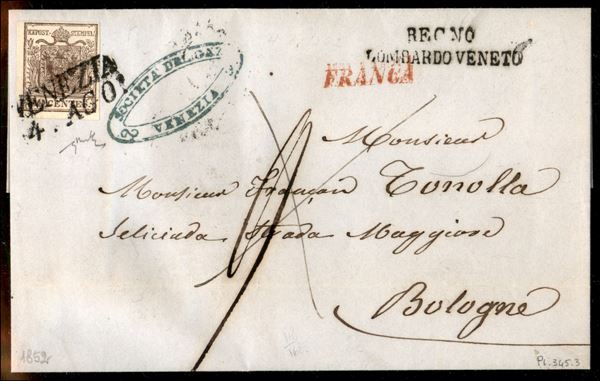 KAPOST-STEMPEL
CENTES
VENEZIA
4. AGO
SOCIETÀ DEL GAZ
VENEZIA
REGNO
LOMBARDO VENETO
FRANCA
Monsieur
Monsieur Françan Tonolla
Seliciada Strada Maggiore
Bologne
1852
Pl. 345.3